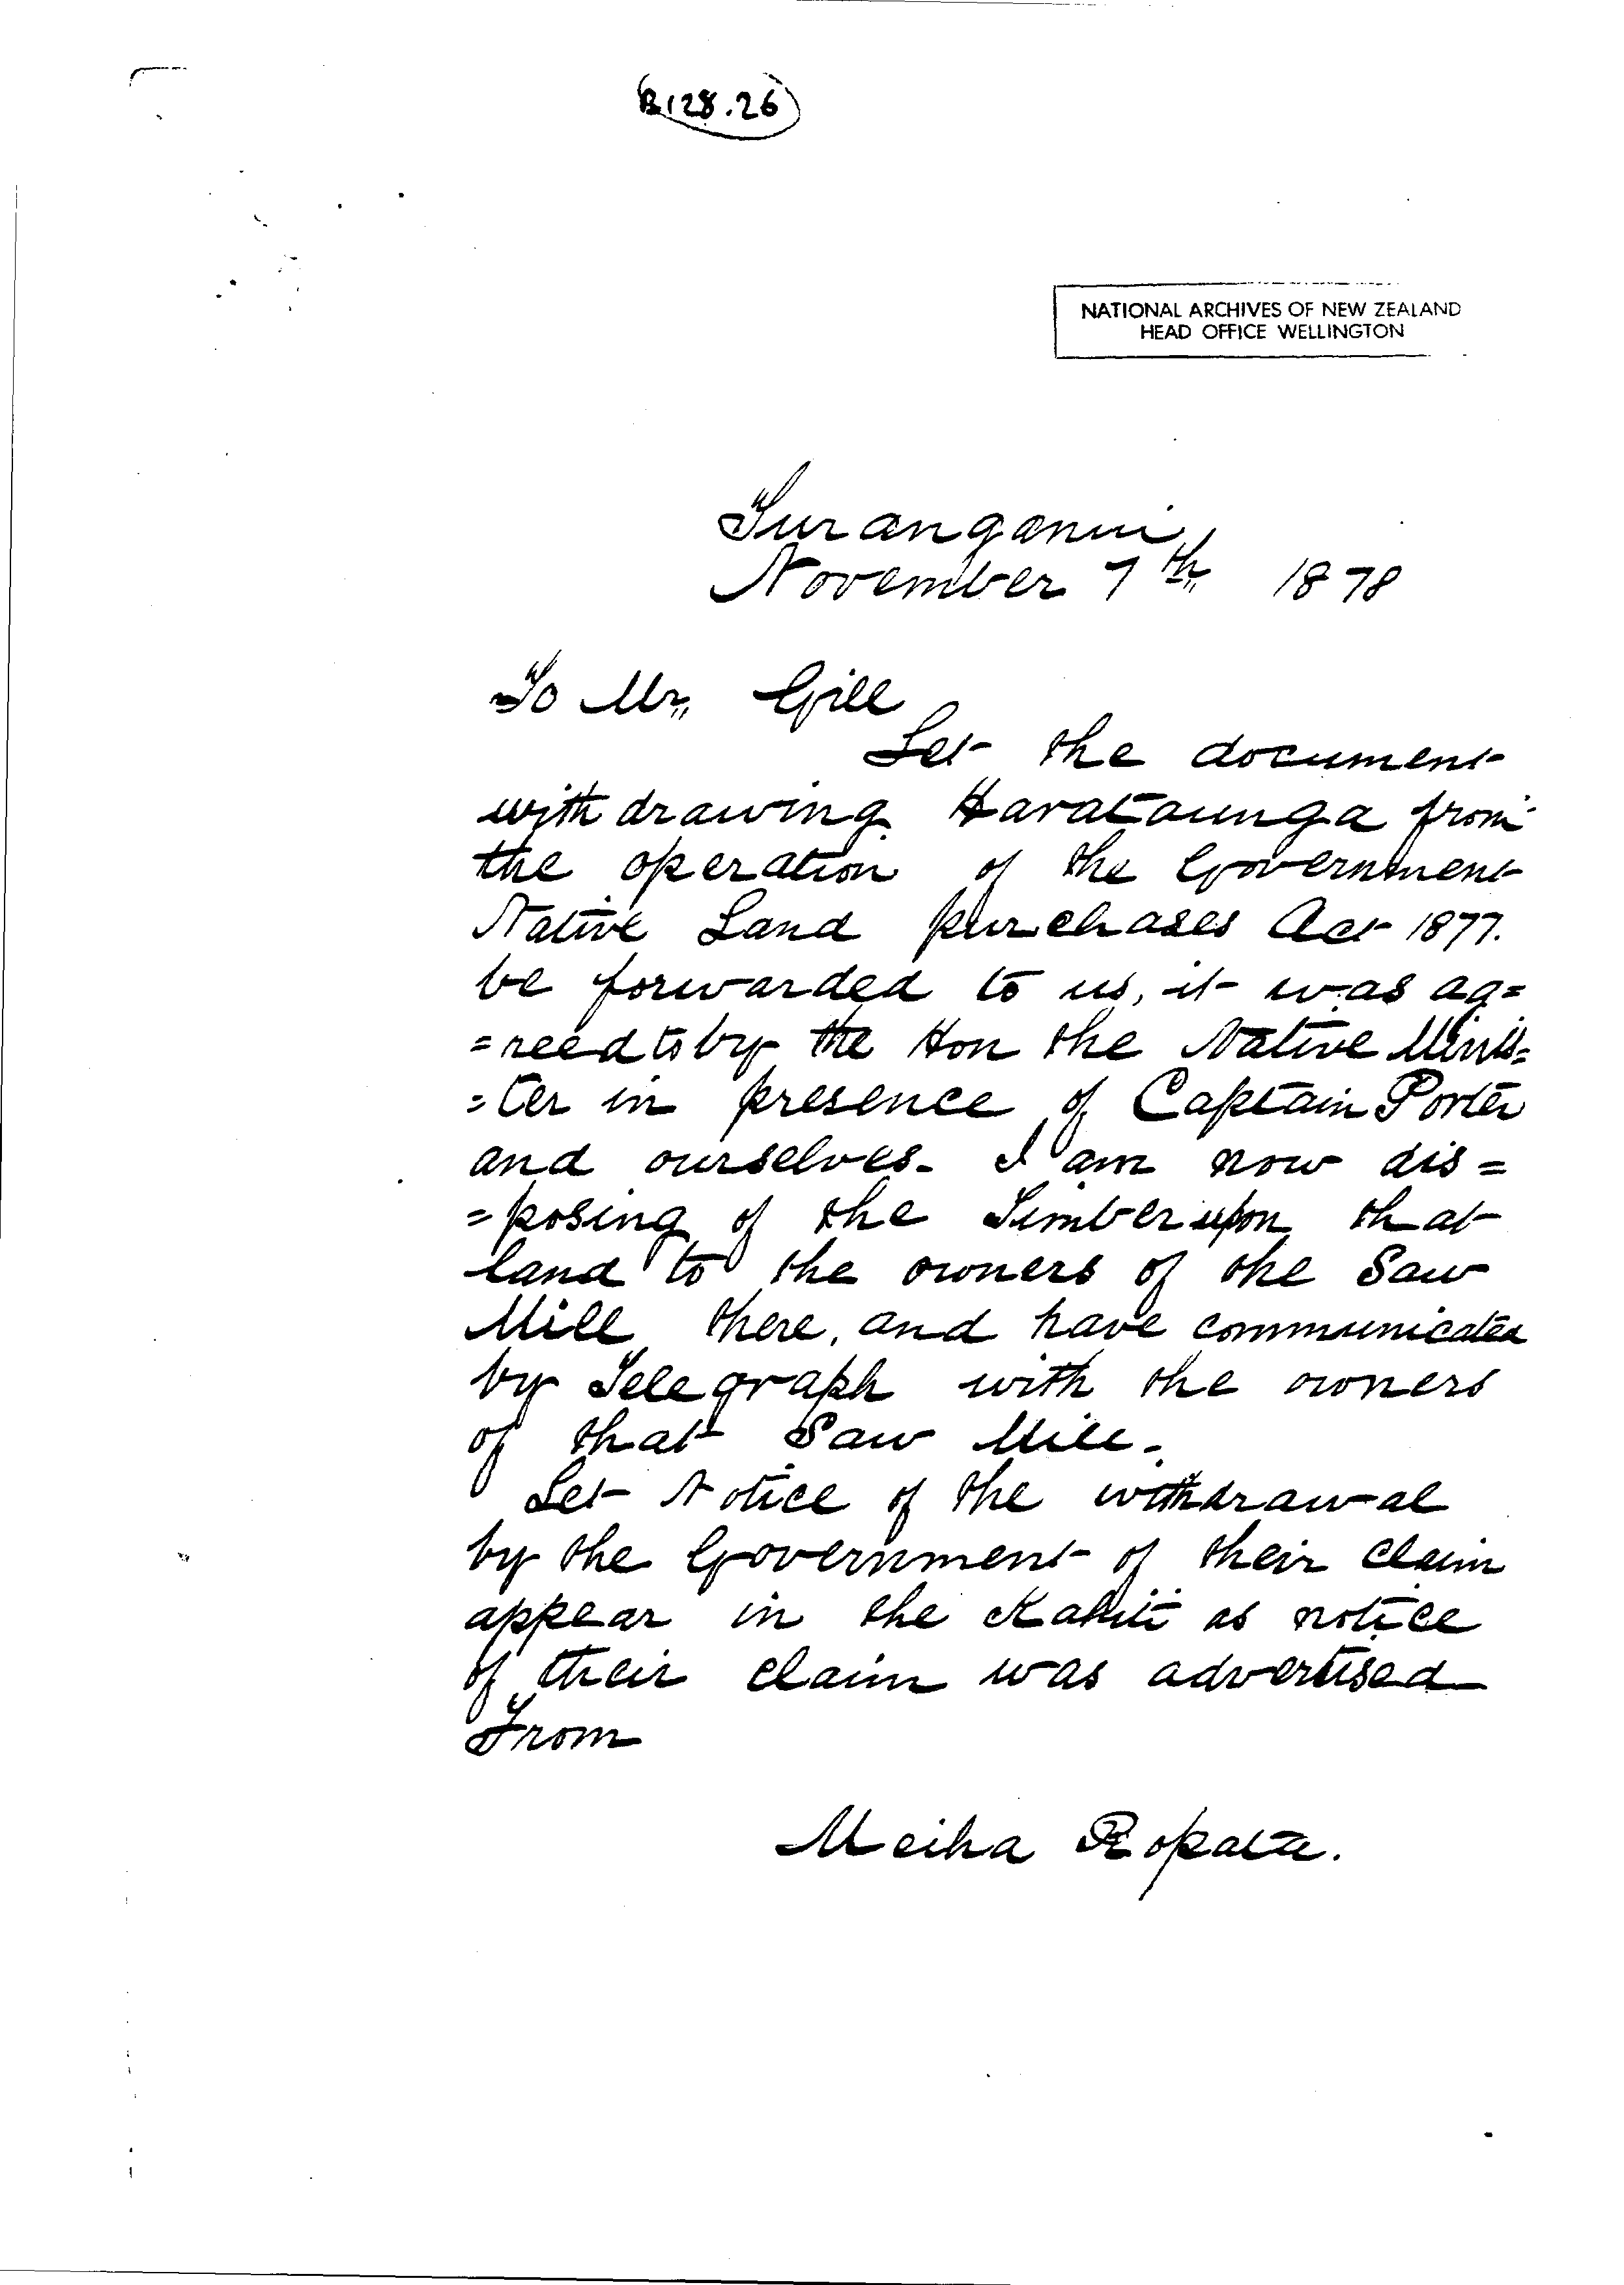 B128.26
NATIONAL ARCHIVES OF NEW ZEALAND
HEAD OFFICE WELLINGTON
Turanganui
November 7th, 1878
To Mr, Gill
Let the document
withdrawing Harataunga from
the operation of the Government
Native Land purchases Act 1877.
be forwarded to us, it was ag=
=reed to by the Hon the Native Minis=
=ter in presence of Captain Porter
and ourselves. I am now dis=
=posing of the Timber upon that
land to the owners of the Saw
Mill there, and have communicated
by Telegraph with the owners
of that Saw Mill.
Let Notice of the withdrawal
by the Government of their claim
appear in the Kahiti as notice
of their claim was advertised
From
Meiha Ropata.